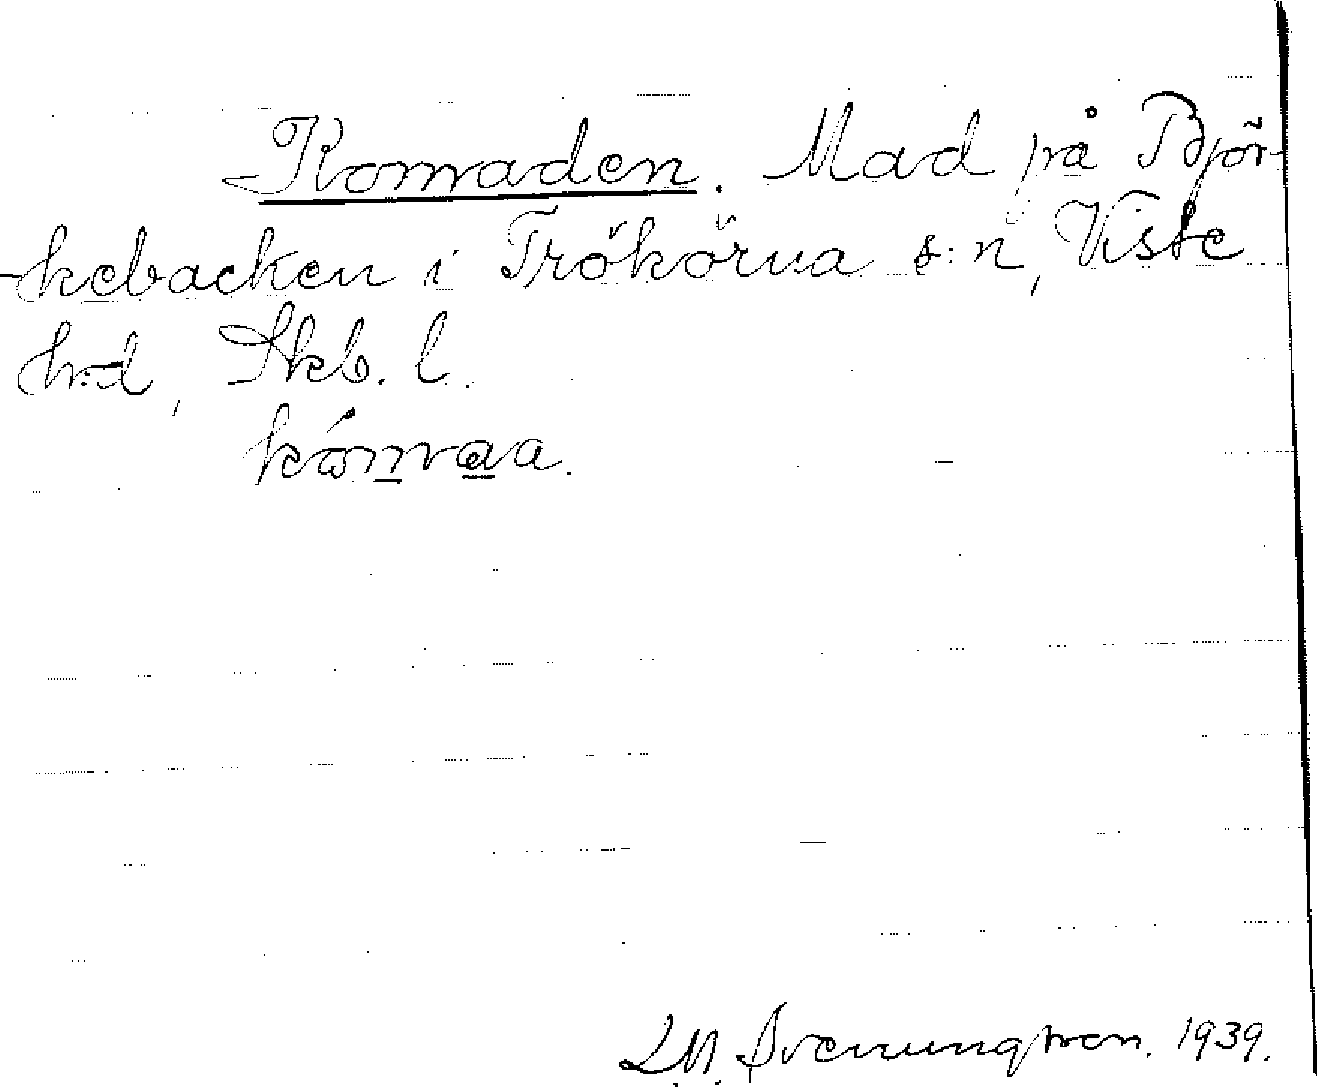 Komaden. Mad på Björ-
kebacken i Trökörna s:n, Viste
hd, Skb. l.
L.M. Svenungsson. 1939.